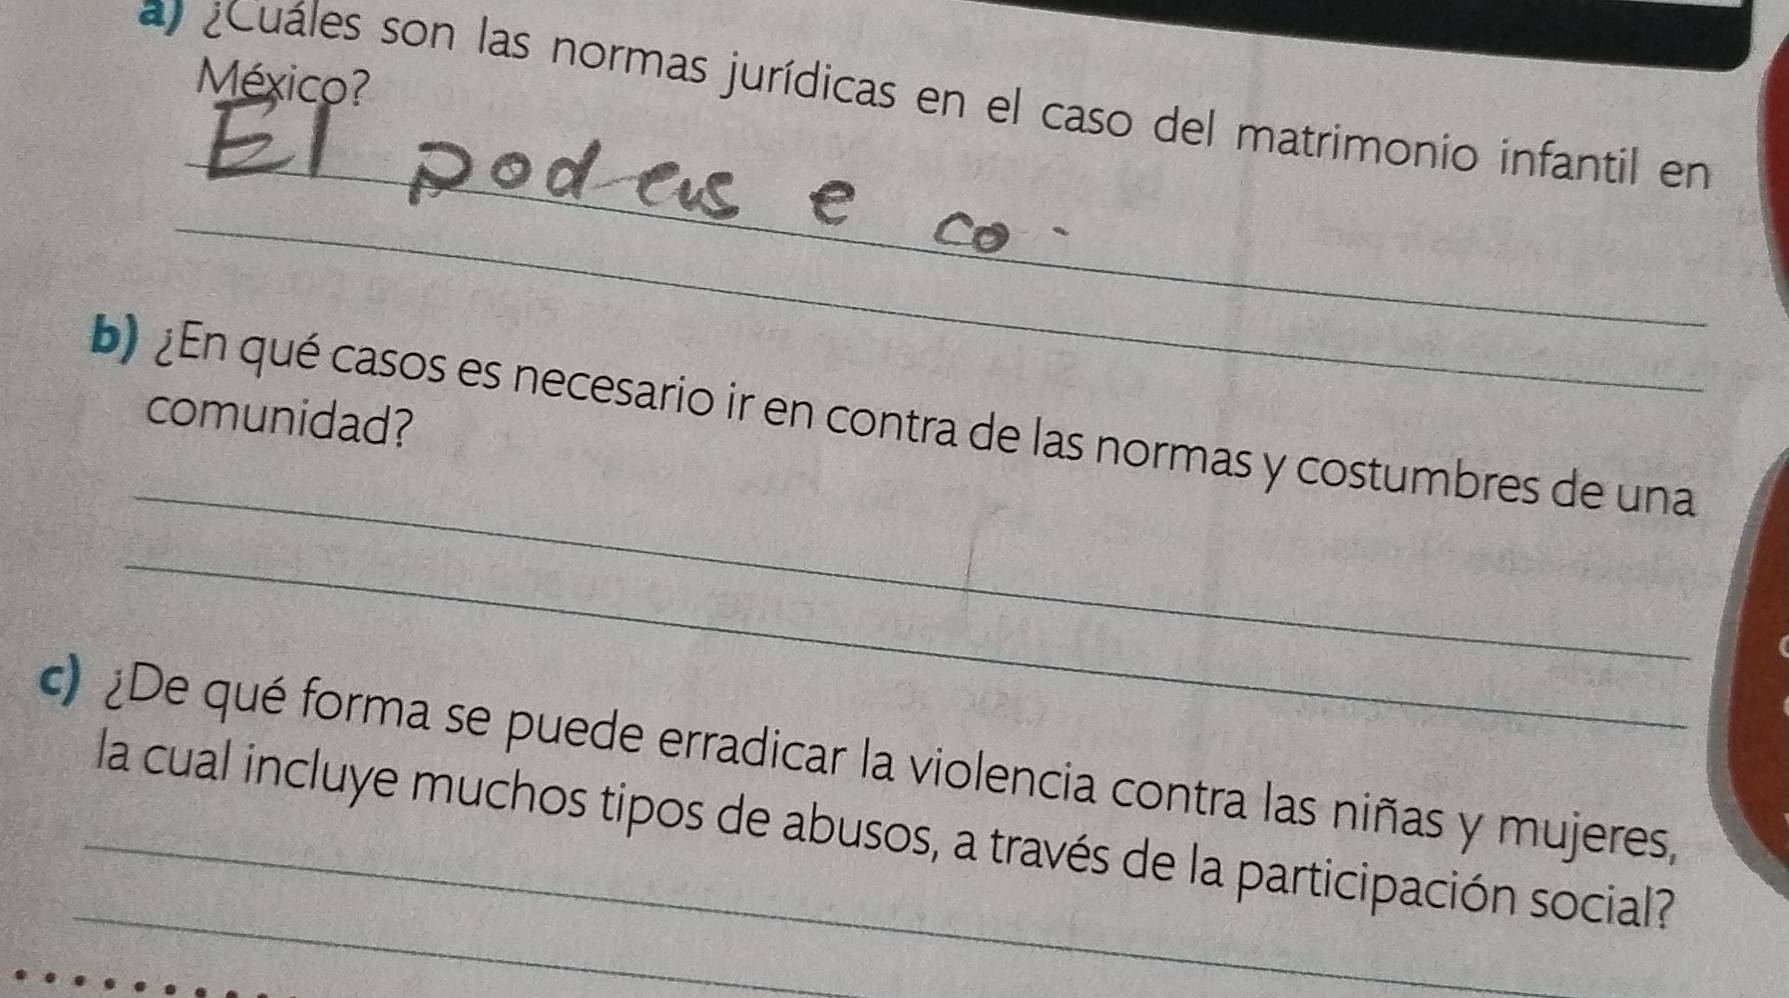 a) ¿Cuáles son las normas jurídicas en el caso del matrimonio infantil en
México?
El pod e co
b) ¿En qué casos es necesario ir en contra de las normas y costumbres de una
comunidad?
c) ¿De qué forma se puede erradicar la violencia contra las niñas y mujeres,
la cual incluye muchos tipos de abusos, a través de la participación social?